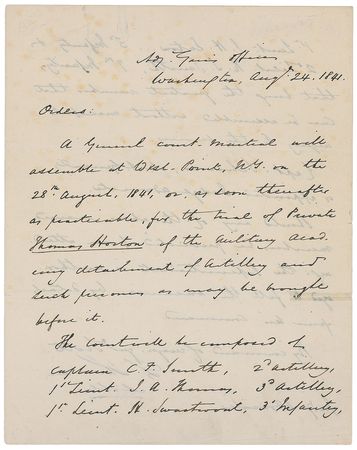 Adj. Gen's Office
Washington, Augt. 24. 1841.
Orders:
A General court-martial will
assemble at West-Point, N.Y. on the
28th August, 1841, or, as soon thereafter
as practicable, for the trial of Private
Thomas Horton of the Military Acad
emy detachment of Artillery and
such prisoners as may be brought
before it.
The Court will be composed of
Captain C. F. Smith, 2d Artillery,
1st Lieut. J. A. Thomas, 3d Artillery,
1st Lieut. H. Swartwout, 3d Infantry,